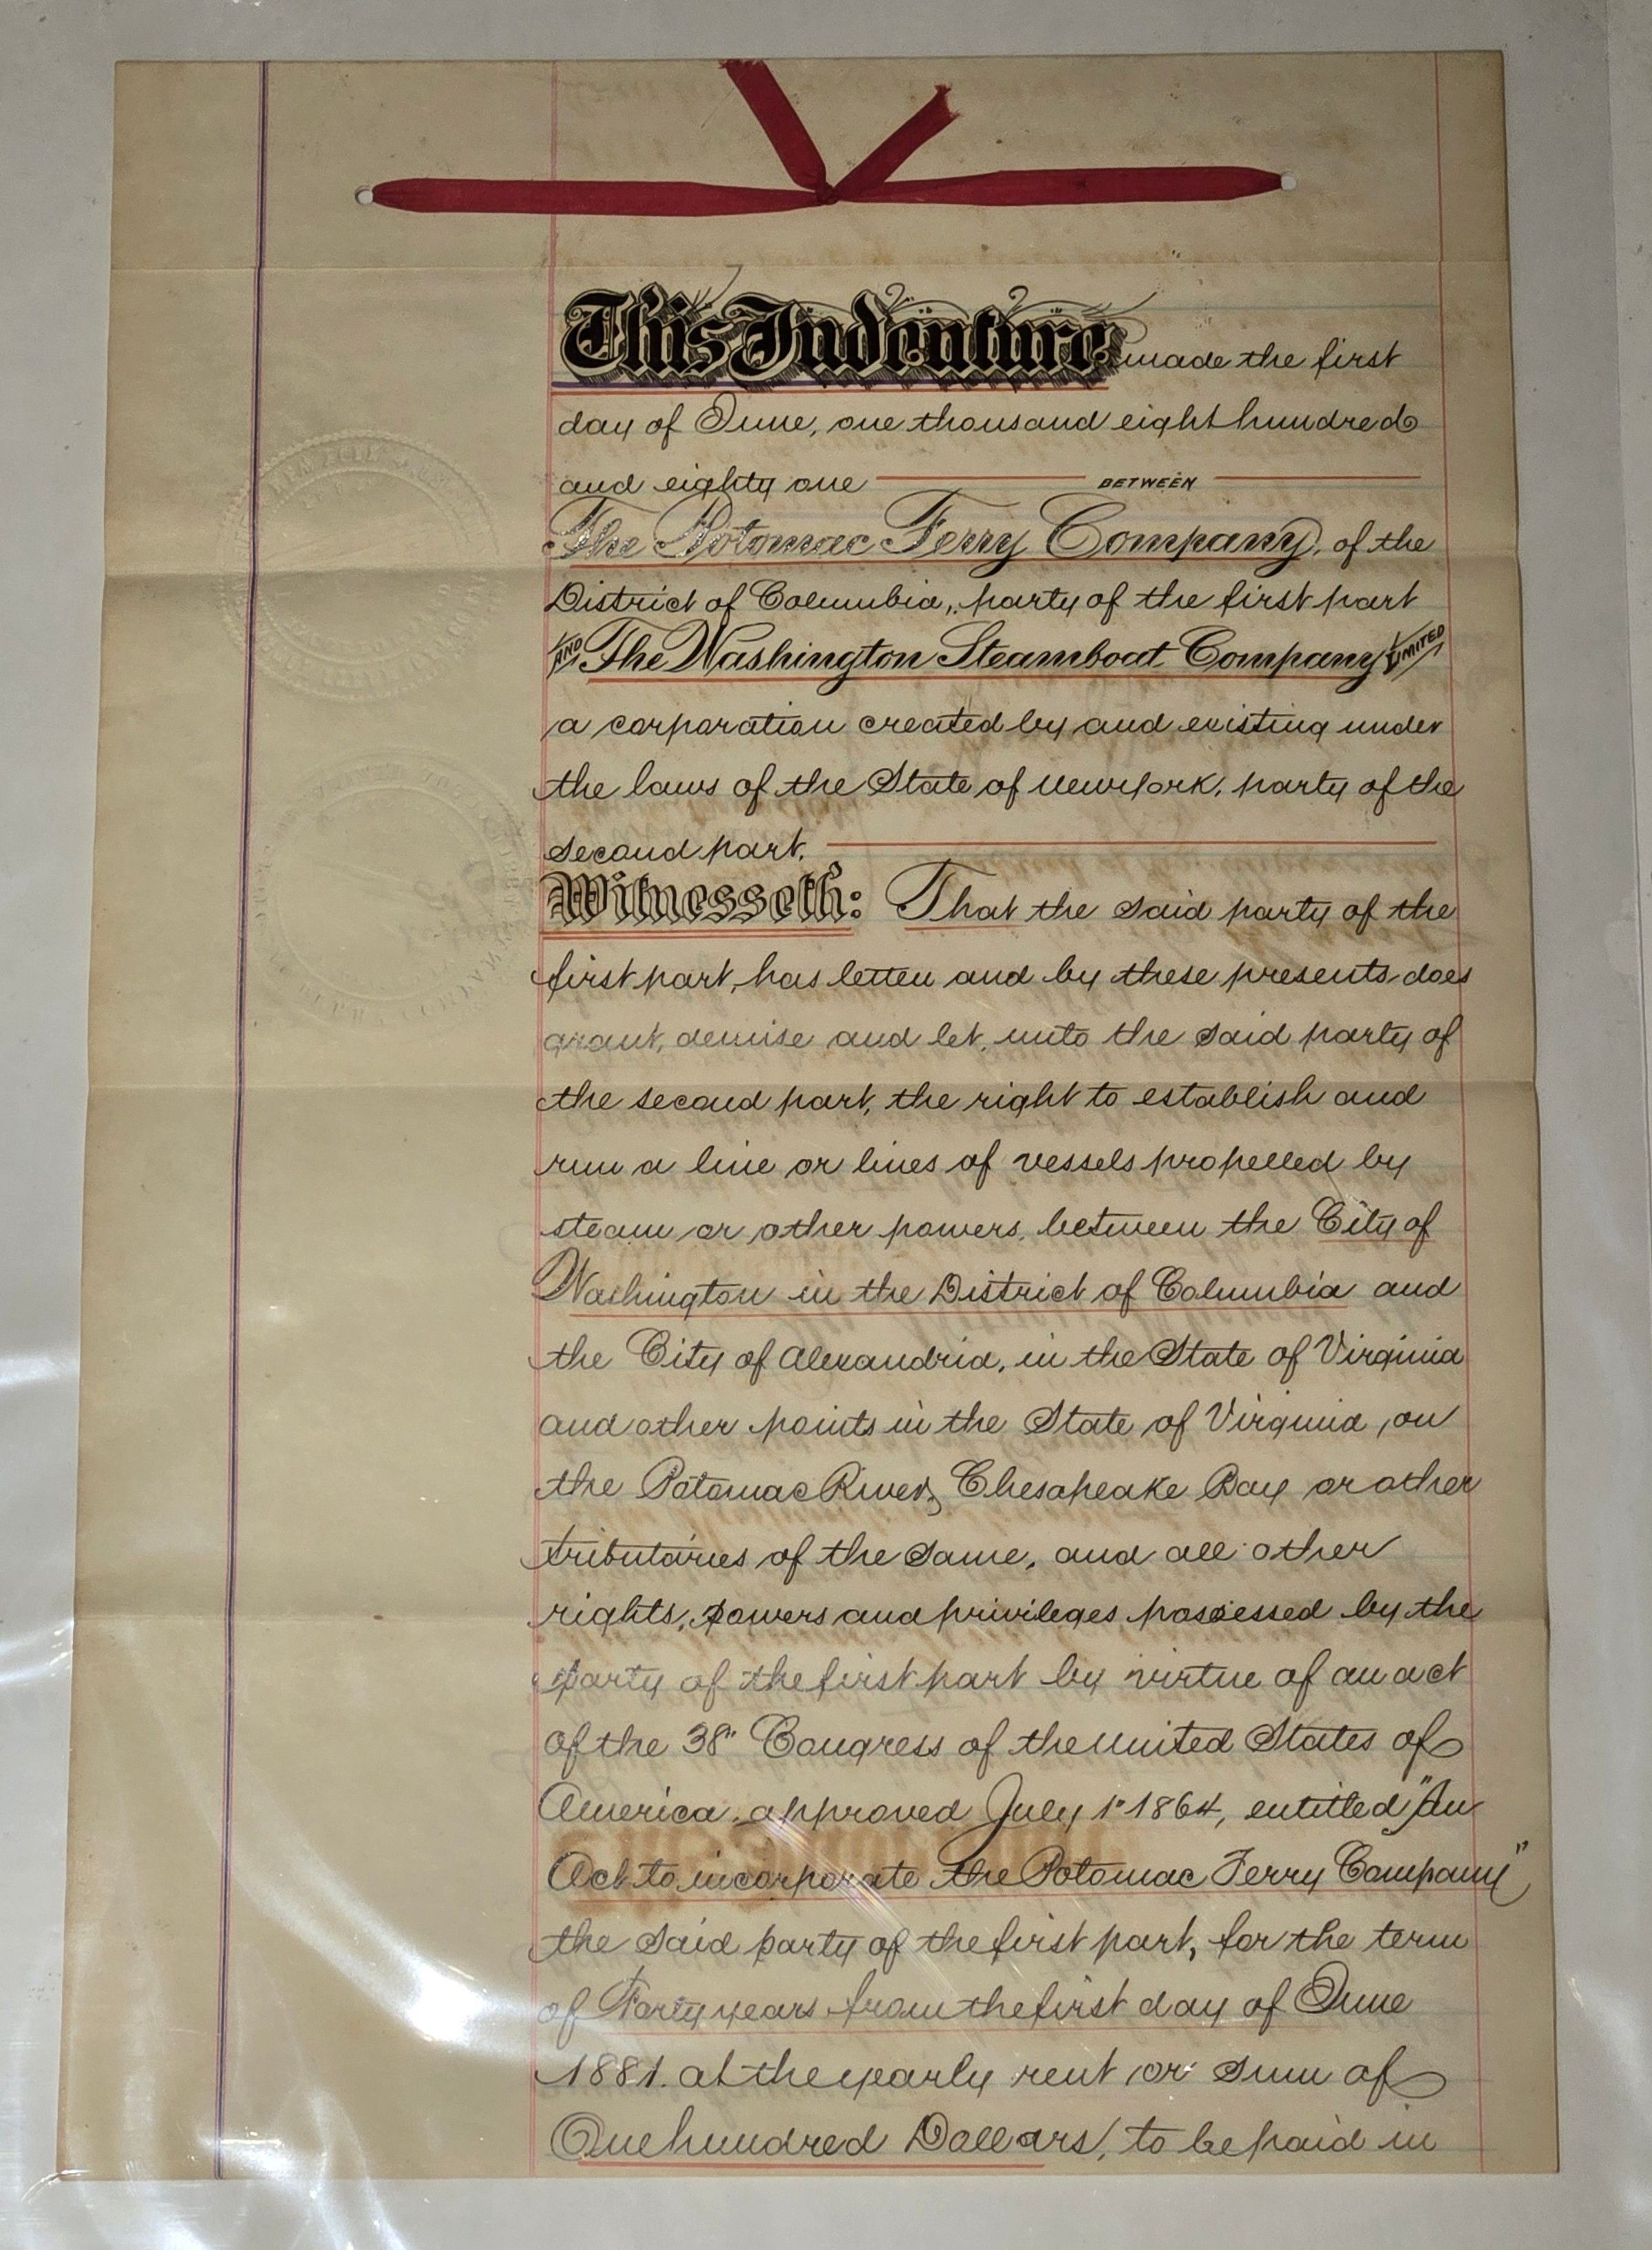 This Indenture made the first
day of June, one thousand eight hundred
and eighty one BETWEEN
The Potomac Ferry Company, of the
District of Columbia, party of the first part
AND The Washington Steamboat Company LIMITED
a corporation created by and existing under
the laws of the State of New York, party of the
second part.
Witnesseth: That the said party of the
first part, has letten and by these presents does
grant, demise and let, unto the said party of
the second part, the right to establish and
run a line or lines of vessels propelled by
steam or other powers, between the City of
Washington in the District of Columbia and
the City of Alexandria, in the State of Virginia
and other points in the State of Virginia, on
the Potomac River, Chesapeake Bay or other
tributaries of the same, and all other
rights, powers and privileges possessed by the
party of the first part by virtue of an act
of the 38" Congress of the United States of
America, approved July 1" 1864, entitled "An
Act to incorporate the Potomac Ferry Company"
the said party of the first part, for the term
of Forty years from the first day of June
1881. at the yearly rent or sum of
One hundred Dollars, to be paid in